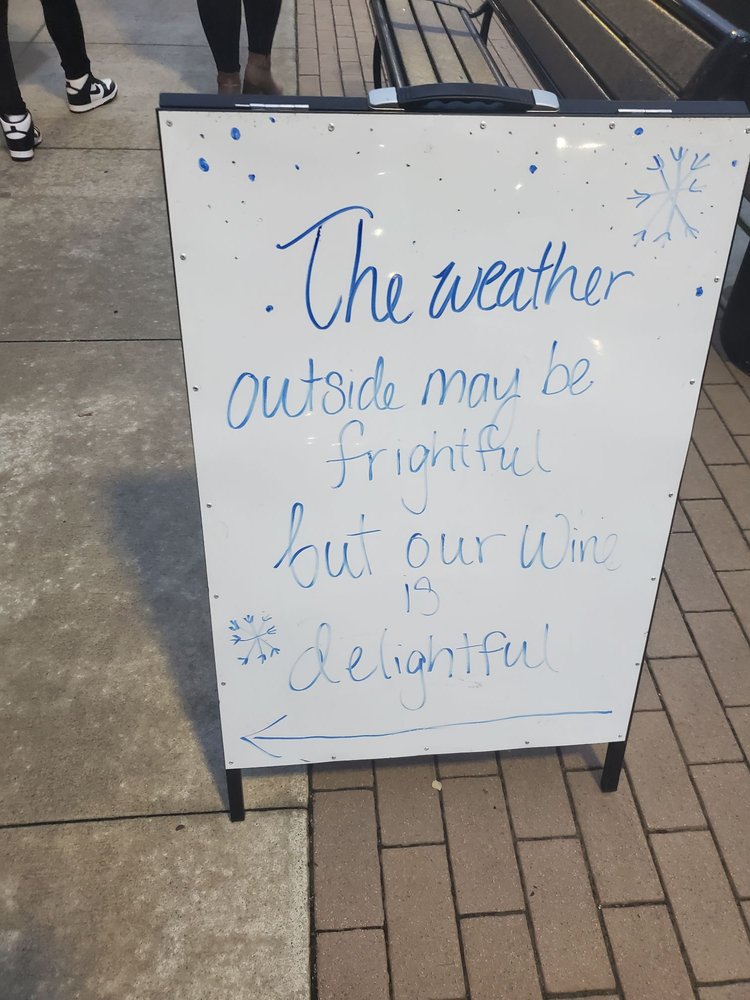 The weather
outside may be
frightful
but our Wine
is
delightful